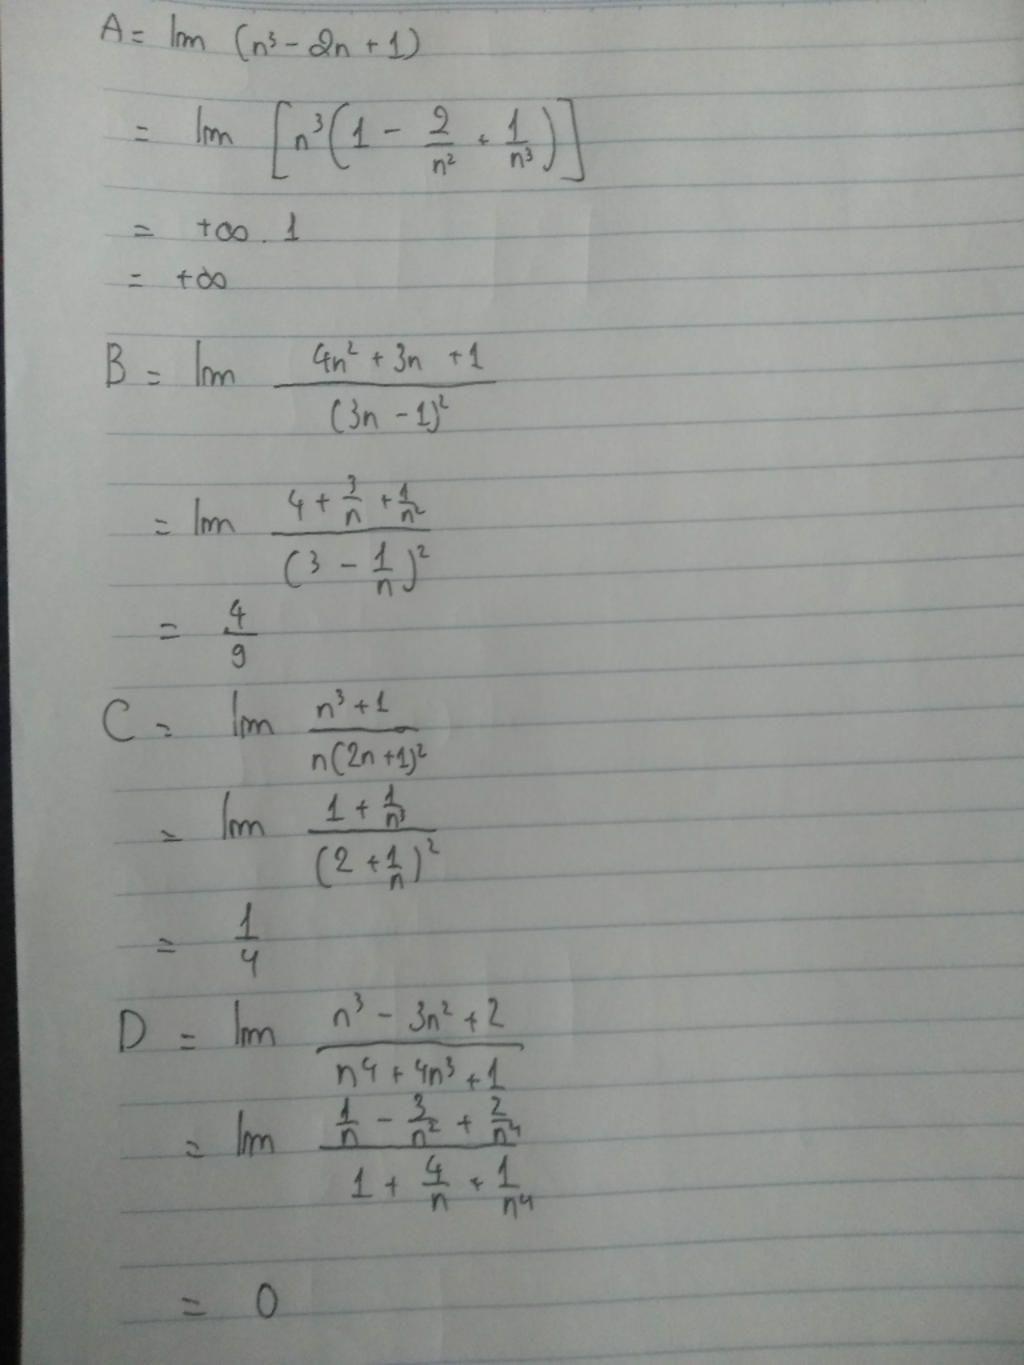 A = lim (n³ - 2n + 1)
= lim [n³(1 - 2/n² + 1/n³)]
= +∞ . 1
= +∞
B = lim (4n² + 3n + 1)/(3n - 1)²
= lim (4 + 3/n + 1/n²)/(3 - 1/n)²
= 4/9
C = lim (n³ + 1)/(n(2n + 1)²)
= lim (1 + 1/n³)/(2 + 1/n)²
= 1/4
D = lim (n³ - 3n² + 2)/(n⁴ + 4n³ + 1)
= lim (1/n - 3/n² + 2/n⁴)/(1 + 4/n + 1/n⁴)
= 0